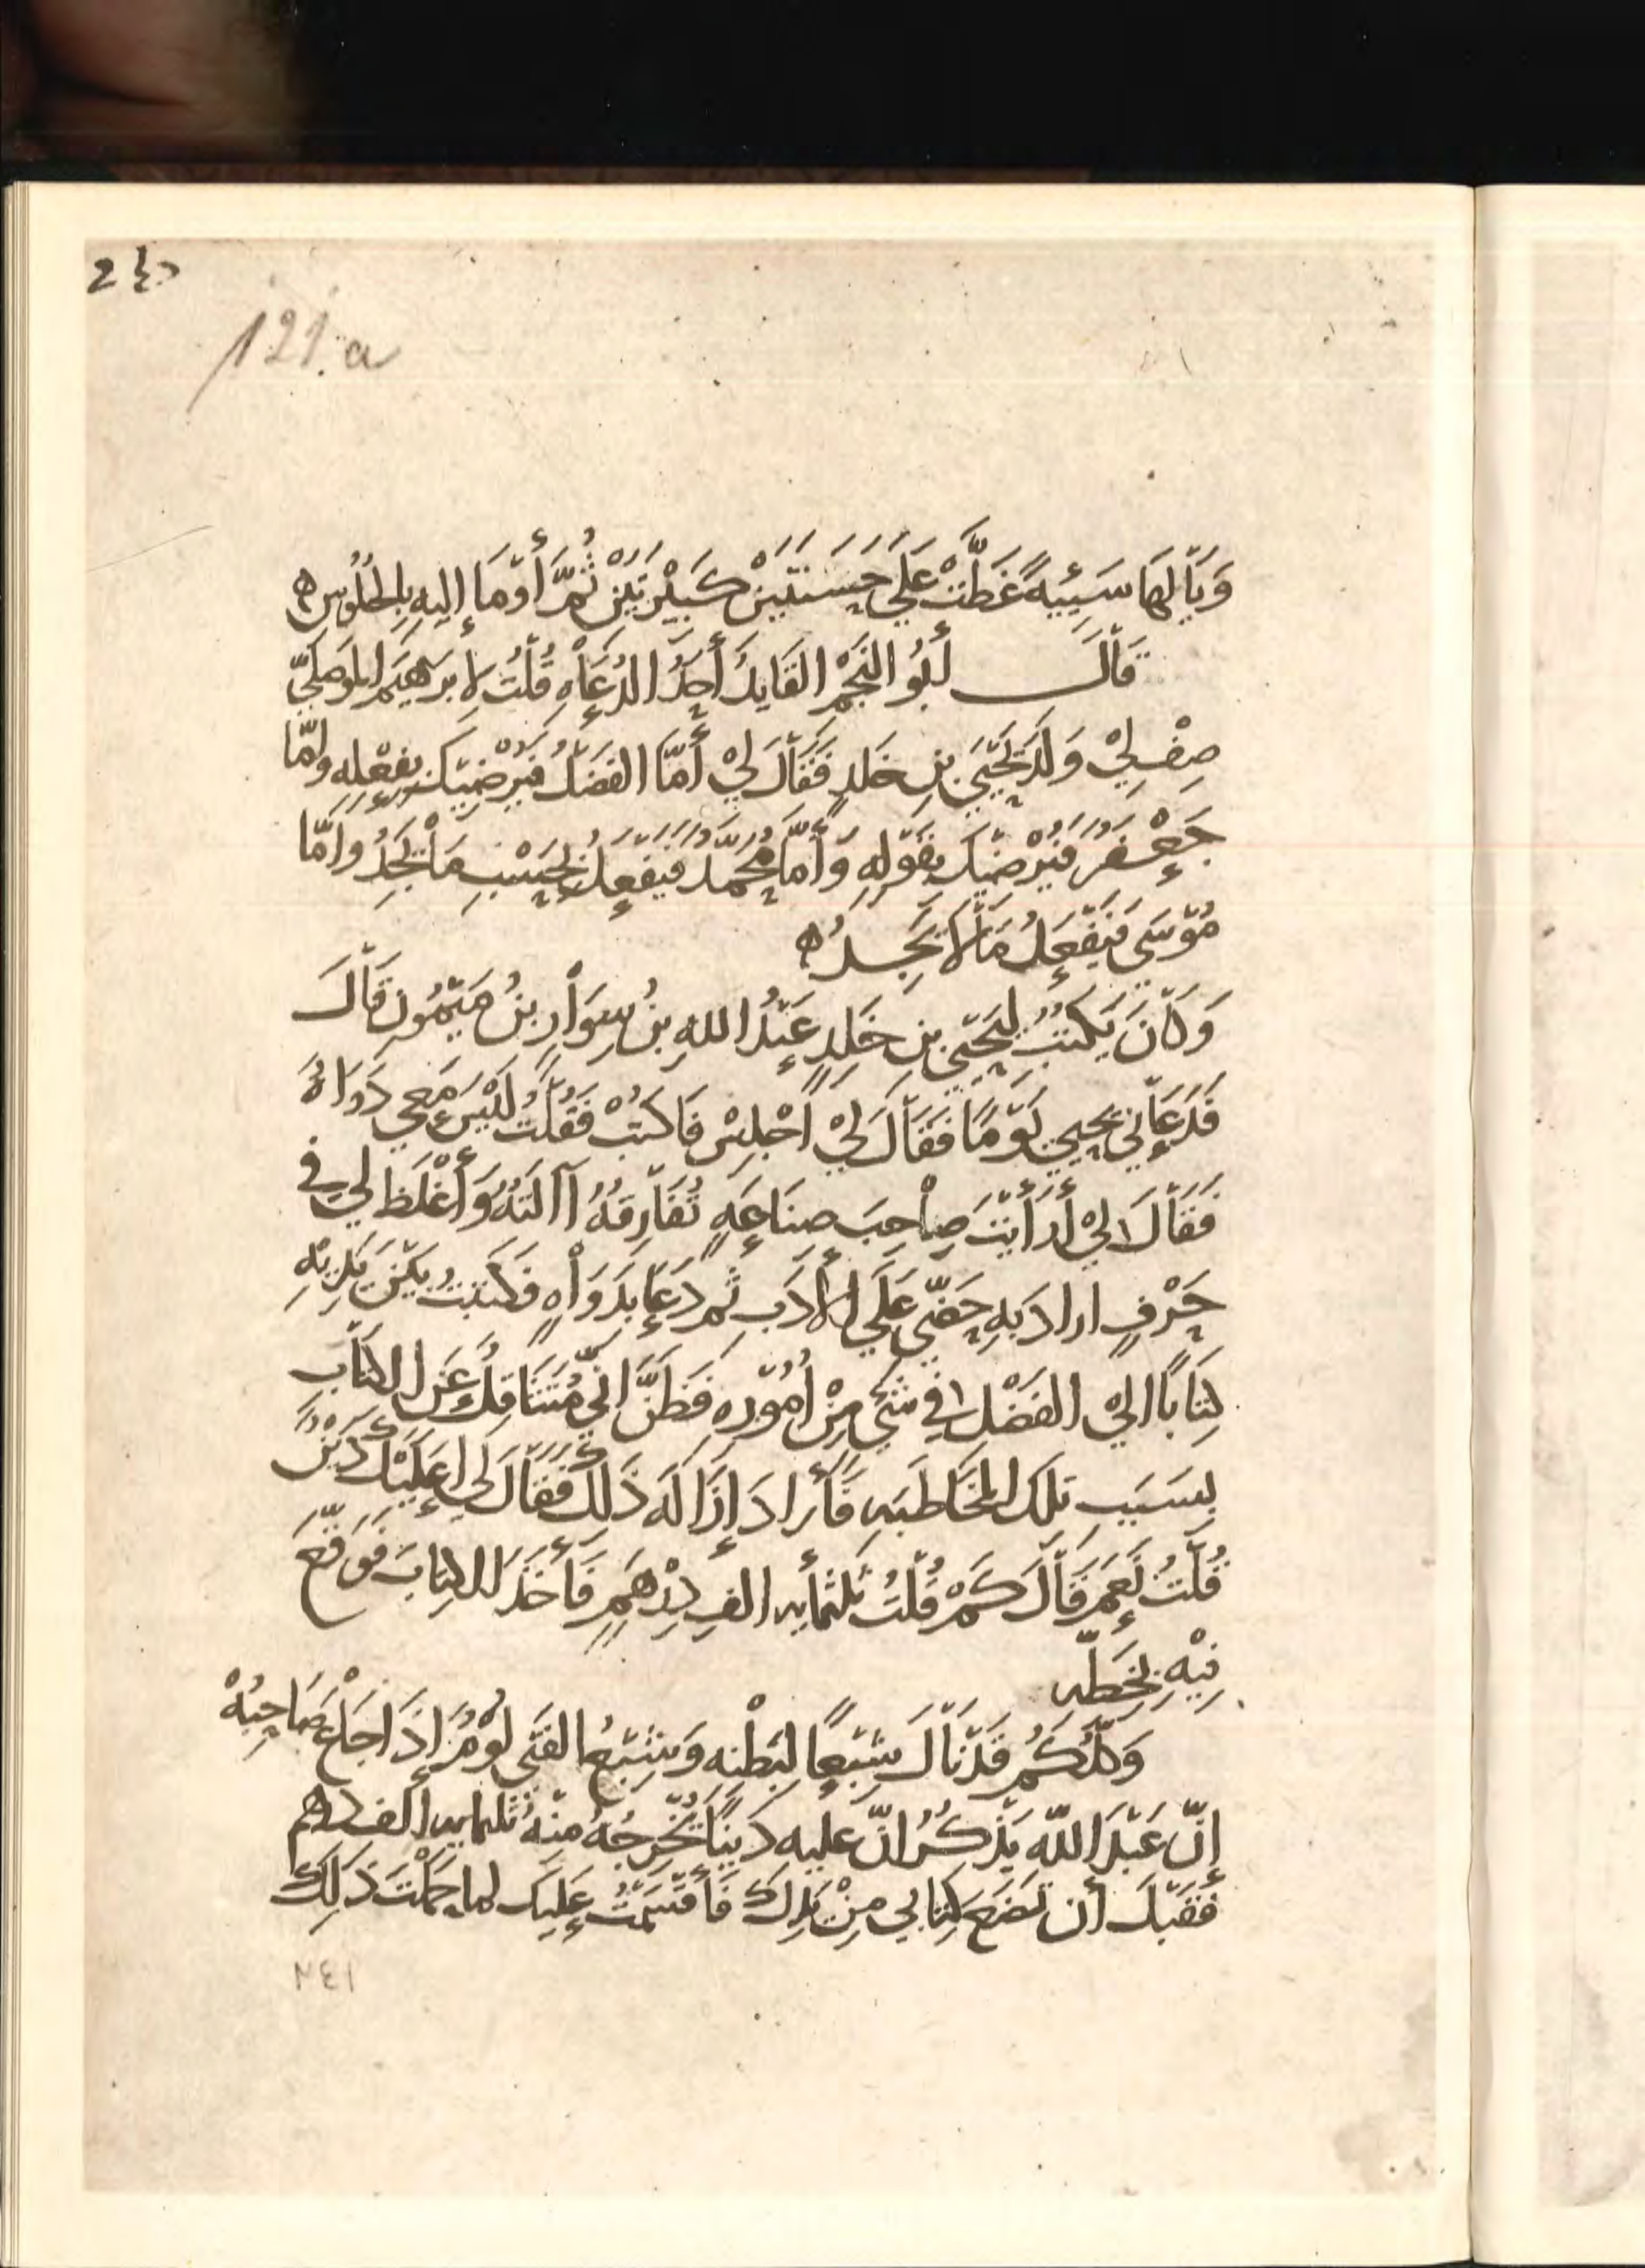 121.a
وَيَالَهَا سَيِّيَةً غَطَّتْ عَلَي حَسَنَتَيْنْ كَبِيْرَتَيْنْ ثُمَّ أَوْمَا إِليهِ بِالجُلُوسِ ه
قَالَ أَبُو النَجْمِ القَايِدُ أَحَدُ الدُعَاهِ قُلْتُ لابرَهيَم المَوصِليّ
صِفْ لِيْ وَلَدَ يَحْيَىَ بنِ خلدٍ فَقَالَ لِيْ أَمَّا الفَضْلُ فَيُرْضِيْكَ بِفِعْلِه وامّا
جَعْفَرُ فَيُرْضِيْكَ بِقَوْلِهِ وَأَمَّا مُحَمَّدُ فَيَفْعَلُ بِحَسْبِ مَا يَجِدُ وَامَّا
مُوْسَى فَيَفْعَلُ مَا لَا يَجِدُ ه
وَكَانَ يَكتُبُ لِيَحْيَى بنِ خَلِدٍ عَبْدُ اللهِ بنُ سِوَارِ بنُ مَيْمُونِ قَالَ
فَدَعَانِي يحيى يَوْمًا فَقَالَ لِيْ اَجْلِسْ فَاكتبْ فَقُلْتُ لَيْسَ مَعِي دَوَاةٌ
فَقَالَ لِيْ أَرَأَيْتَ صَاحِبَ صِنَاعَةٍ تُفَارِقُهُ آالَتَهُ وَأَغْلَظَ لِي فِي
حَرْفٍ اراد َبِهِ حَضّي عَلَي الأَدَبِ ثم دَعَا بِدَوَاهٍ فَكَتَبْتُ بَيْنَ يَدَيْهِ
كِتَابًا الي الفَضْلِ فِي شَيءٍ مِنْ اُمُوْرِهِ فَظَنَّ انِّي مُتَثَاقِلٌ عَنِ الكِتَابِ
بِسَبَبِ تلكَ المخَاطَبَهِ فَأَرادَ إِزَالَهَ ذَلِكَ فَقَالَ لِي اَعَلَيْكَ دَيْنٌ
قُلْتُ نَعَم قَالَ كَمْ قُلتُ ثَلثمأيه الفِ دِرْهَمٍ فَأَخَذَ الكِتابَ فَوقّعَ
فِيْهِ بِخَطِّهِ
وَكُلُّكُم قَدْ نَالَ شِبْعًا لِبَطْنِه وَشِبْعُ الفَتَى لُوْمٌ إِذَا جَاعَ صَاحِبُهْ
إِنّ عَبْدَ اللّه يَذْكُرُ انّ عليهِ دَيْنًا يُخْرِجُهُ مِنْهُ ثلثمايه الف درهم
فَقَبْلَ أن تَضَعَ كِتابي مِنْ يَدِكَ فَأَقْسَمْتُ عَلَيكَ لما حَمَلْتَ ذَلِكَ
٢٤١